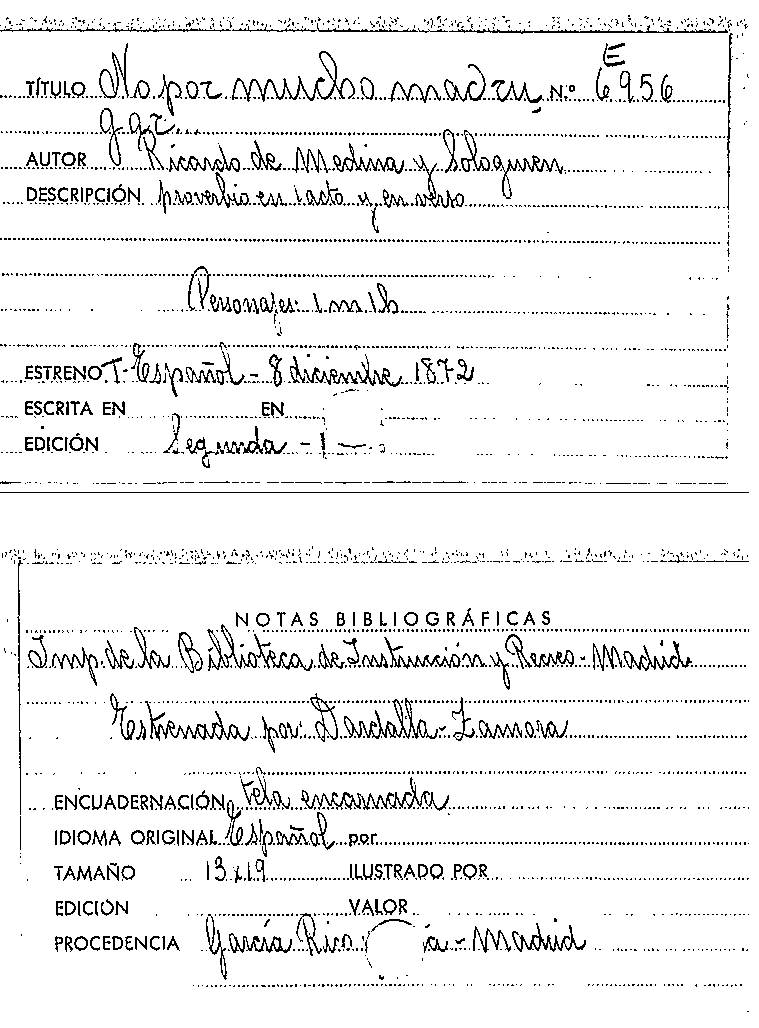 TÍTULO No por mucho madru N.º E 6956
gar...
AUTOR Ricardo de Medina y Sologuren
DESCRIPCIÓN proverbio en 1 acto y en verso
Personajes: 1 m 1 h
ESTRENO T. Español - 8 diciembre 1872
ESCRITA EN EN
EDICIÓN Segunda - 1 -
NOTAS BIBLIOGRÁFICAS
Imp. de la Biblioteca de Instrucción y Recreo - Madrid
Estrenada por: Dardalla - Zamora
ENCUADERNACIÓN tela encarnada
IDIOMA ORIGINAL Español por
TAMAÑO 13x19 ILUSTRADO POR
EDICIÓN VALOR
PROCEDENCIA García Rico - Madrid